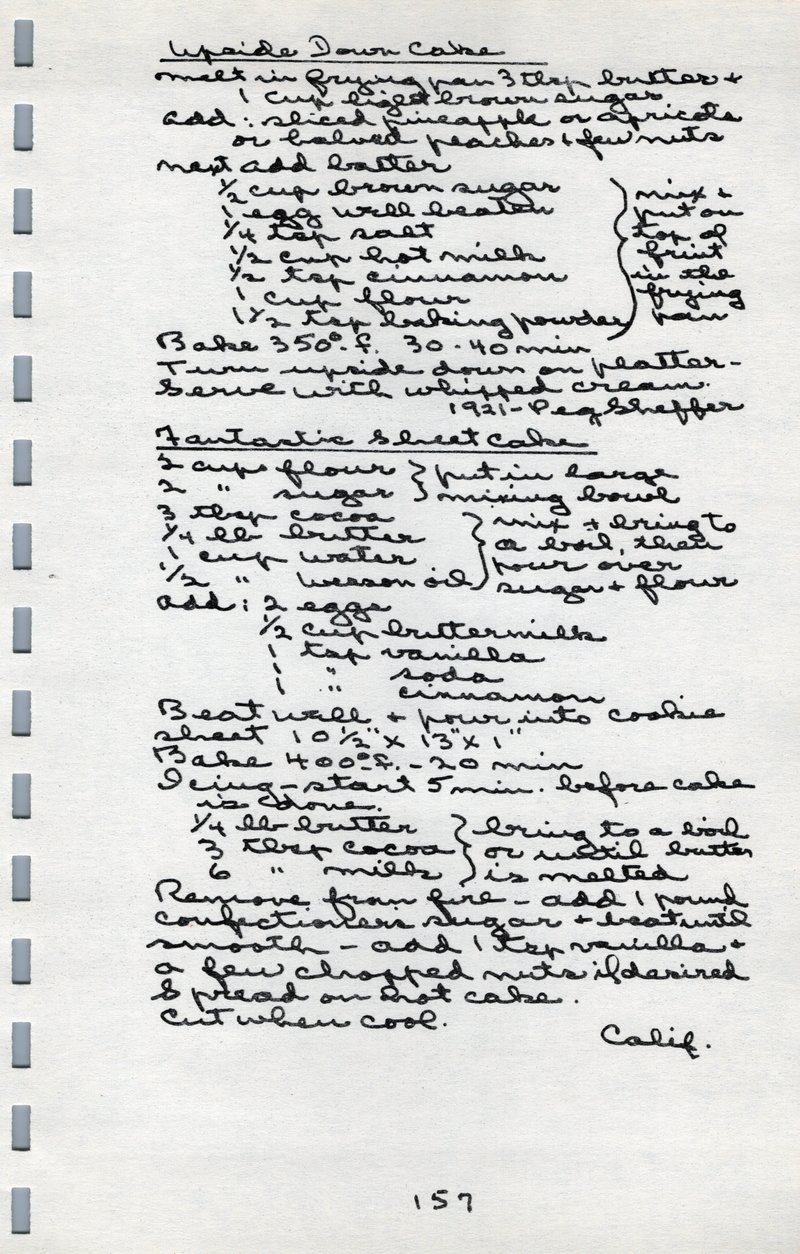 Upside Down Cake
melt in frying pan 3 tbsp butter +
1 cup light brown sugar
add: sliced pineapple or apricots
or halved peaches + few nuts
next add batter
1/2 cup brown sugar
1 egg well beaten
1/4 tsp salt
1/2 cup hot milk
1/2 tsp cinnamon
1 cup flour
1 1/2 tsp baking powder
mix +
put on
top of
fruit
in the
frying
pan
Bake 350°.f. 30-40 min
Turn upside down on platter-
Serve with whipped cream.
1921-Peg Sheffer
Fantastic Sheet Cake
2 cups flour
2 " sugar
put in large
mixing bowl
3 tbsp cocoa
1/4 lb butter
1 cup water
1/2 " wesson oil
mix + bring to
a boil, then
pour over
sugar + flour
add: 2 eggs
1/2 cup buttermilk
1 tsp vanilla
1 " soda
1 " cinnamon
Beat well + pour into cookie
sheet 10 1/2" x 13" x 1"
Bake 400°f. - 20 min
Icing - start 5 min. before cake
is done.
1/4 lb butter
3 tbsp cocoa
6 " milk
bring to a boil
or until butter
is melted
Remove from fire - add 1 pound
confectioners sugar + beat until
smooth - add 1 tsp vanilla +
a few chopped nuts if desired
Spread on hot cake.
Cut when cool.
Calif.
157